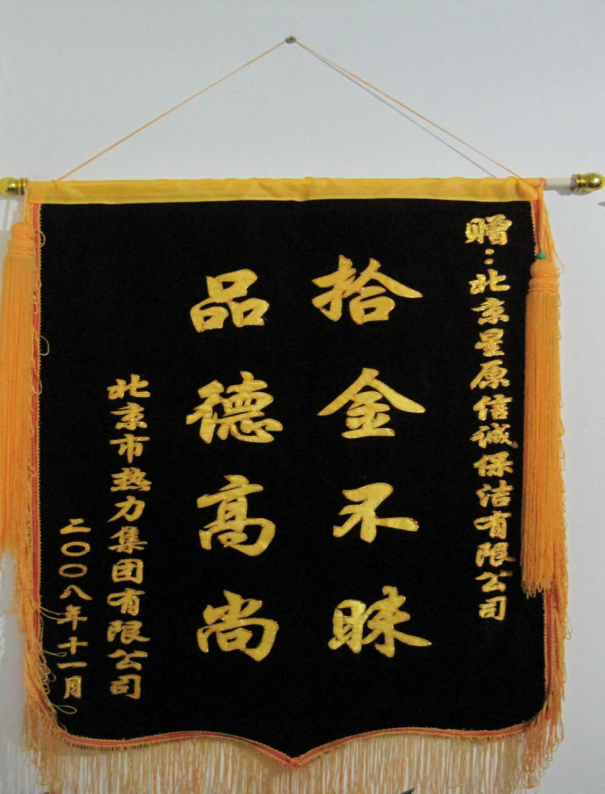 赠:北京星原信诚保洁有限公司
拾金不昧
品德高尚
北京市热力集团有限公司
二〇〇八年十一月